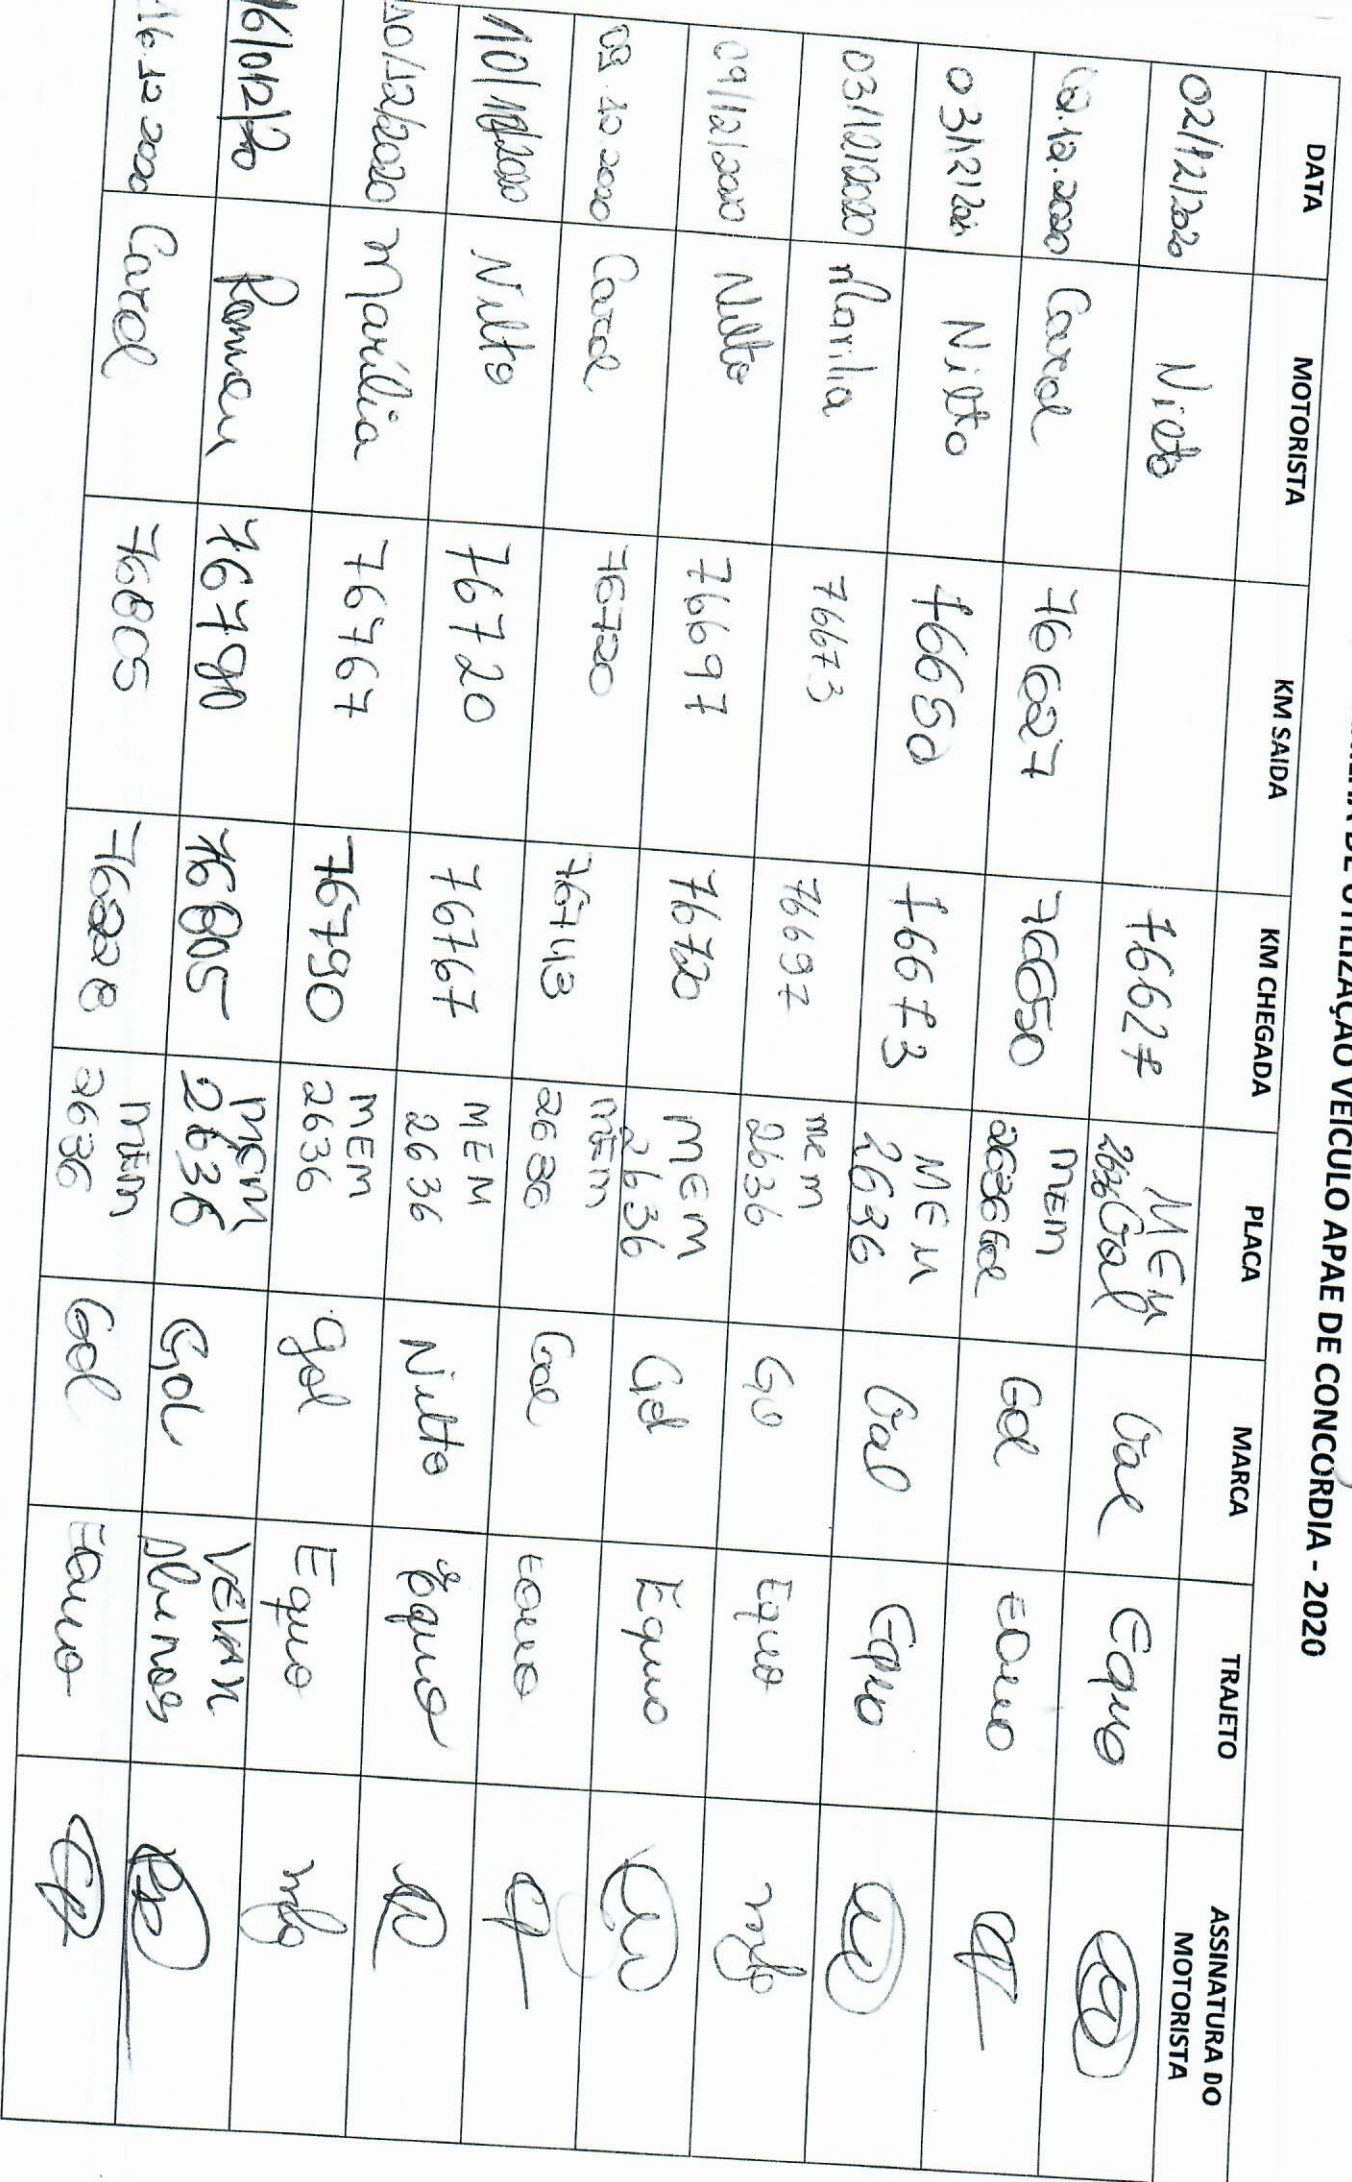 DE UTILIZAÇÃO VEÍCULO APAE DE CONCÓRDIA - 2020
DATA MOTORISTA KM SAIDA KM CHEGADA PLACA MARCA TRAJETO ASSINATURA DO MOTORISTA
02/12/2020 Nilto 76627 MEM 2636 Gol Gol Equo
02.12.2020 Carol 76627 76650 MEM 2636 Gol Gol Equo
03/12/2020 Nilto 76650 76673 MEM 2636 Gol Equo
03/12/2020 Marilia 76673 76697 mem 2636 Gol Equo
09/12/2020 Nilto 76697 76720 MEM 2636 Gol Equo
09.12.2020 Carol 76720 76743 MEM 2636 Gol Equo
10/12/2020 Nilto 76720 76767 MEM 2636 Nilto Equo
10/12/2020 Marília 76767 76790 MEM 2636 gol Equo
16/012/20 Romeu 76790 76805 MEM 2636 Gol Alunos
16.12.2020 Carol 76805 76828 MEM 2636 Gol Equo